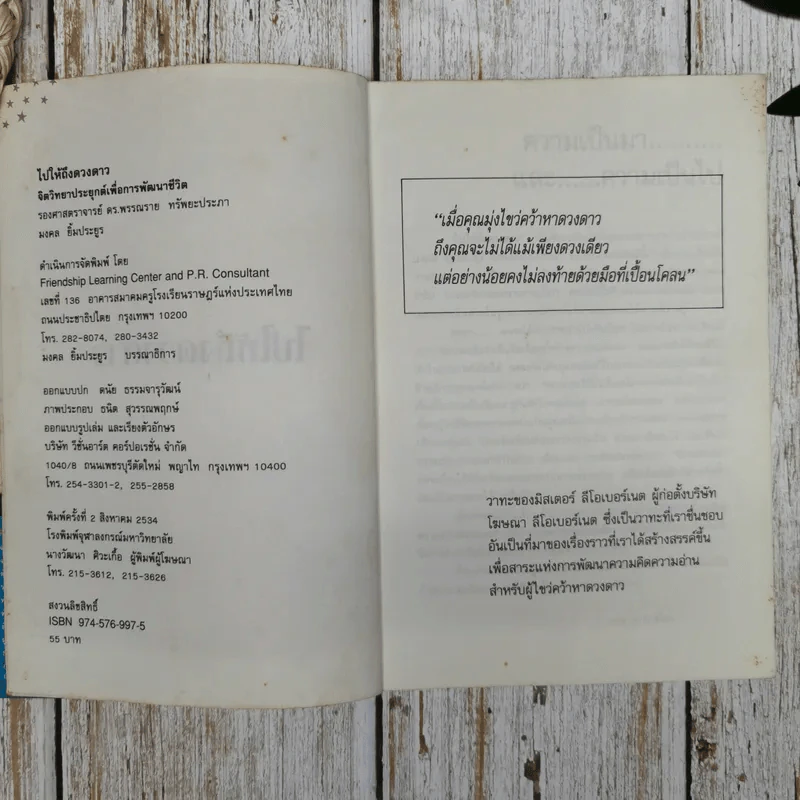 ไปให้ถึงดวงดาว
จิตวิทยาประยุกต์เพื่อการพัฒนาชีวิต
รองศาสตราจารย์ ดร.พรรณราย ทรัพยะประภา
มงคล ยิ้มประยูร
ดำเนินการจัดพิมพ์ โดย
Friendship Learning Center and P.R. Consultant
เลขที่ 136 อาคารสมาคมครูโรงเรียนราษฎร์แห่งประเทศไทย
ถนนประชาธิปไตย กรุงเทพฯ 10200
โทร. 282-8074, 280-3432
มงคล ยิ้มประยูร บรรณาธิการ
ออกแบบปก ดนัย ธรรมจารุวัฒน์
ภาพประกอบ ธนิต สุวรรณพฤกษ์
ออกแบบรูปเล่ม และเรียงตัวอักษร
บริษัท วีชั่นอาร์ต คอร์ปอเรชั่น จำกัด
1040/8 ถนนเพชรบุรีตัดใหม่ พญาไท กรุงเทพฯ 10400
โทร. 254-3301-2, 255-2858
พิมพ์ครั้งที่ 2 สิงหาคม 2534
โรงพิมพ์จุฬาลงกรณ์มหาวิทยาลัย
นางวัฒนา ศิวะเกื้อ ผู้พิมพ์ผู้โฆษณา
โทร. 215-3612, 215-3626
สงวนลิขสิทธิ์
ISBN 974-576-997-5
55 บาท
“เมื่อคุณมุ่งไขว่คว้าหาดวงดาว
ถึงคุณจะไม่ได้แม้เพียงดวงเดียว
แต่อย่างน้อยคงไม่ลงท้ายด้วยมือที่เปื้อนโคลน”
วาทะของมิสเตอร์ ลีโอเบอร์เนต ผู้ก่อตั้งบริษัท
โฆษณา ลีโอเบอร์เนต ซึ่งเป็นวาทะที่เราชื่นชอบ
อันเป็นที่มาของเรื่องราวที่เราได้สร้างสรรค์ขึ้น
เพื่อสาระแห่งการพัฒนาความคิดความอ่าน
สำหรับผู้ไขว่คว้าหาดวงดาว